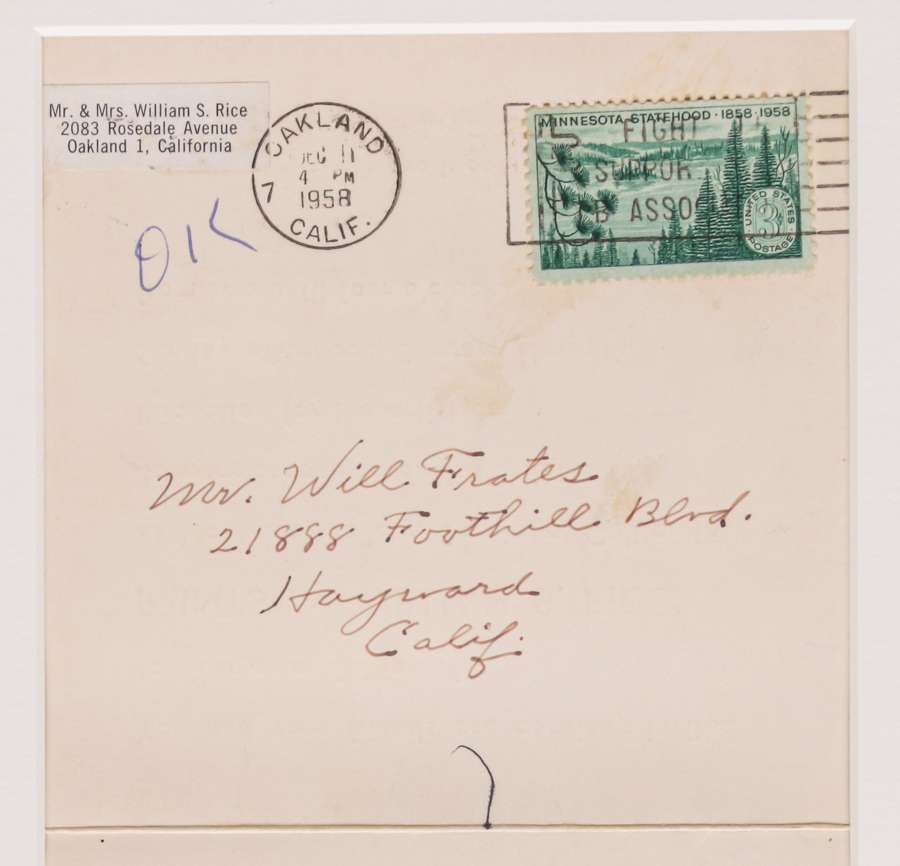 Mr. & Mrs. William S. Rice
2083 Rosedale Avenue
Oakland 1, California
OAKLAND
DEC 11
4 PM
1958
7
CALIF.
MINNESOTA STATEHOOD · 1858 · 1958
FIGHT
SUPPOR
B ASSO
UNITED STATES
3¢
POSTAGE
OK
Mr. Will Frates
21888 Foothill Blvd.
Hayward
Calif.